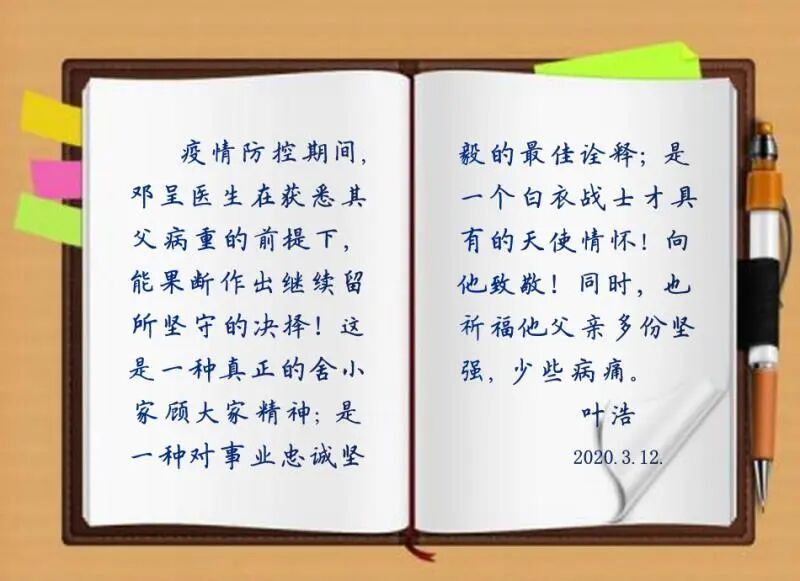 疫情防控期间，
邓呈医生在获悉其
父病重的前提下，
能果断作出继续留
所坚守的决择！这
是一种真正的舍小
家顾大家精神；是
一种对事业忠诚坚
毅的最佳诠释；是
一个白衣战士才具
有的天使情怀！向
他致敬！同时，也
祈福他父亲多份坚
强，少些病痛。
叶浩
2020.3.12.